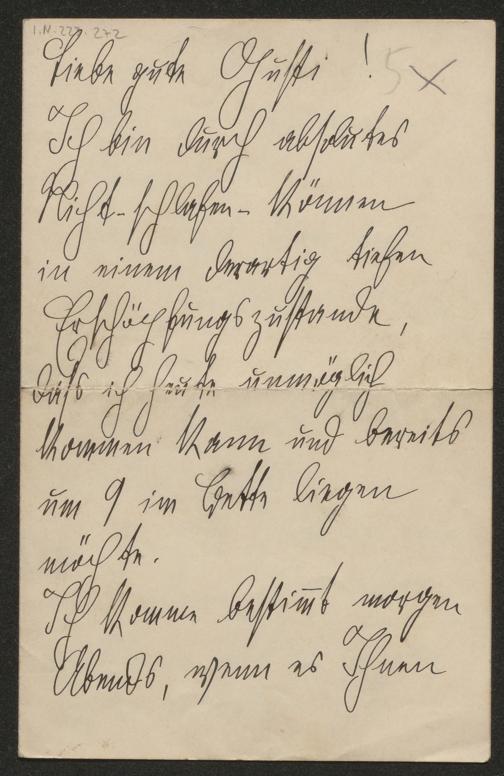 I.N. 227.272
Liebe gute Gusti ! 5 X
Ich bin durch absolutes
Nicht-schlafen-Können
in einem derartig tiefen
Erschöpfungszustande,
dass ich heute unmöglich
kommen kann und bereits
um 9 im Bette liegen
möchte.
Ich komme bestim̅t morgen
Abends, wenn es Ihnen